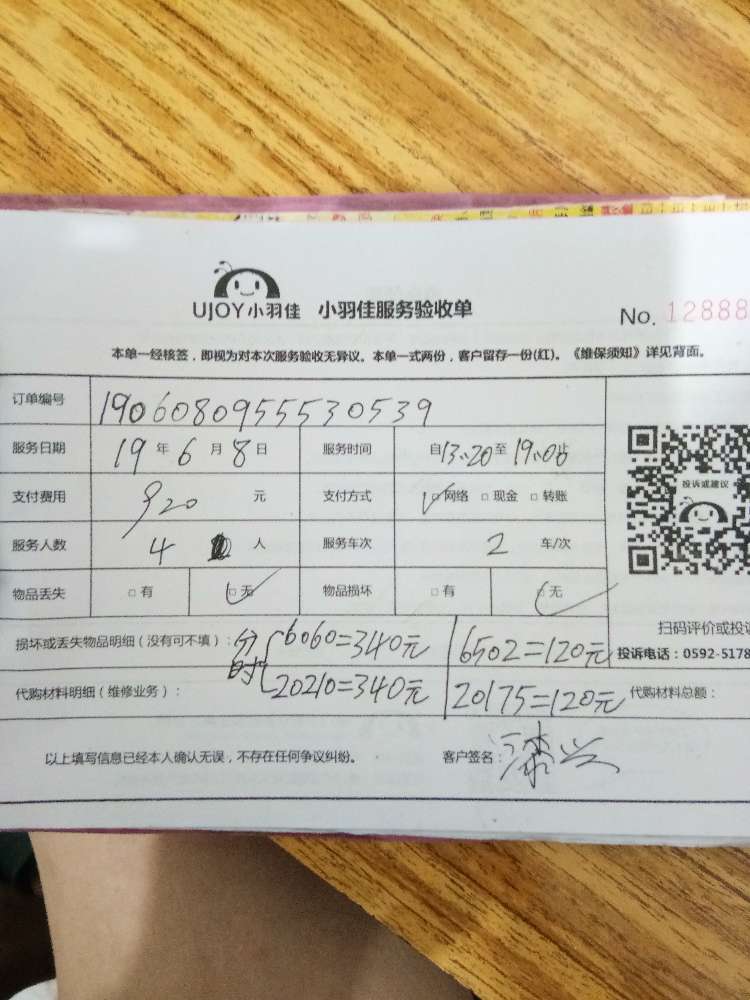 UJOY小羽佳 小羽佳服务验收单 No. 12888
本单一经核签，即视为对本次服务验收无异议。本单一式两份，客户留存一份(红)。《维保须知》详见背面。
订单编号 1906080955530539
服务日期 19 年 6 月 8 日 服务时间 自13:20至19:00止
支付费用 920 元 支付方式 ☑网络 □现金 □转账
服务人数 4 人 服务车次 2 车/次
物品丢失 □有 ☑无 物品损坏 □有 ☑无
投诉或建议
扫码评价或投诉
损坏或丢失物品明细（没有可不填）：分时 6060=340元 6502=120元
投诉电话：0592-5178
代购材料明细（维修业务）： 20210=340元 20175=120元 代购材料总额：
以上填写信息已经本人确认无误，不存在任何争议纠纷。 客户签名：